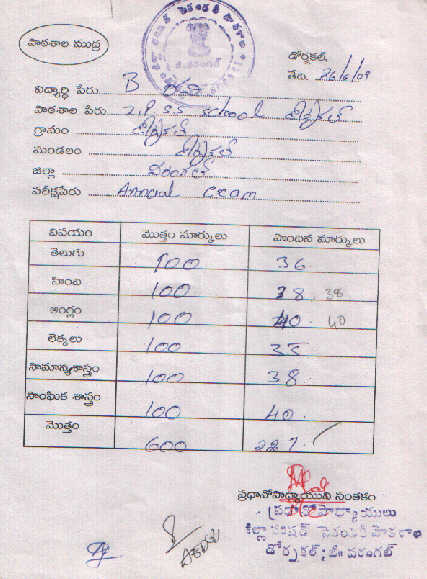 పాఠశాల ముద్ర
డోర్నకల్,
తేది. 26/6/09
విద్యార్థి పేరు B
పాఠశాల పేరు Z.P.S.S school డోర్నకల్
గ్రామం డోర్నకల్
మండలం డోర్నకల్
జిల్లా వరంగల్
పరీక్షపేరు Annual exam
విషయం మొత్తం మార్కులు పొందిన మార్కులు
తెలుగు 100 36
హింది 100 38 38
ఆంగ్లం 100 40 40
లెక్కలు 100 35
సామాన్యశాస్త్రం 100 38
సాంఘిక శాస్త్రం 100 40
మొత్తం 600 227
ప్రధానోపాధ్యాయుని సంతకం
ప్రధానోపాధ్యాయులు
జిల్లా పరిషత్ సెకండరీ పాఠశాల
డోర్నకల్; జి॥ వరంగల్